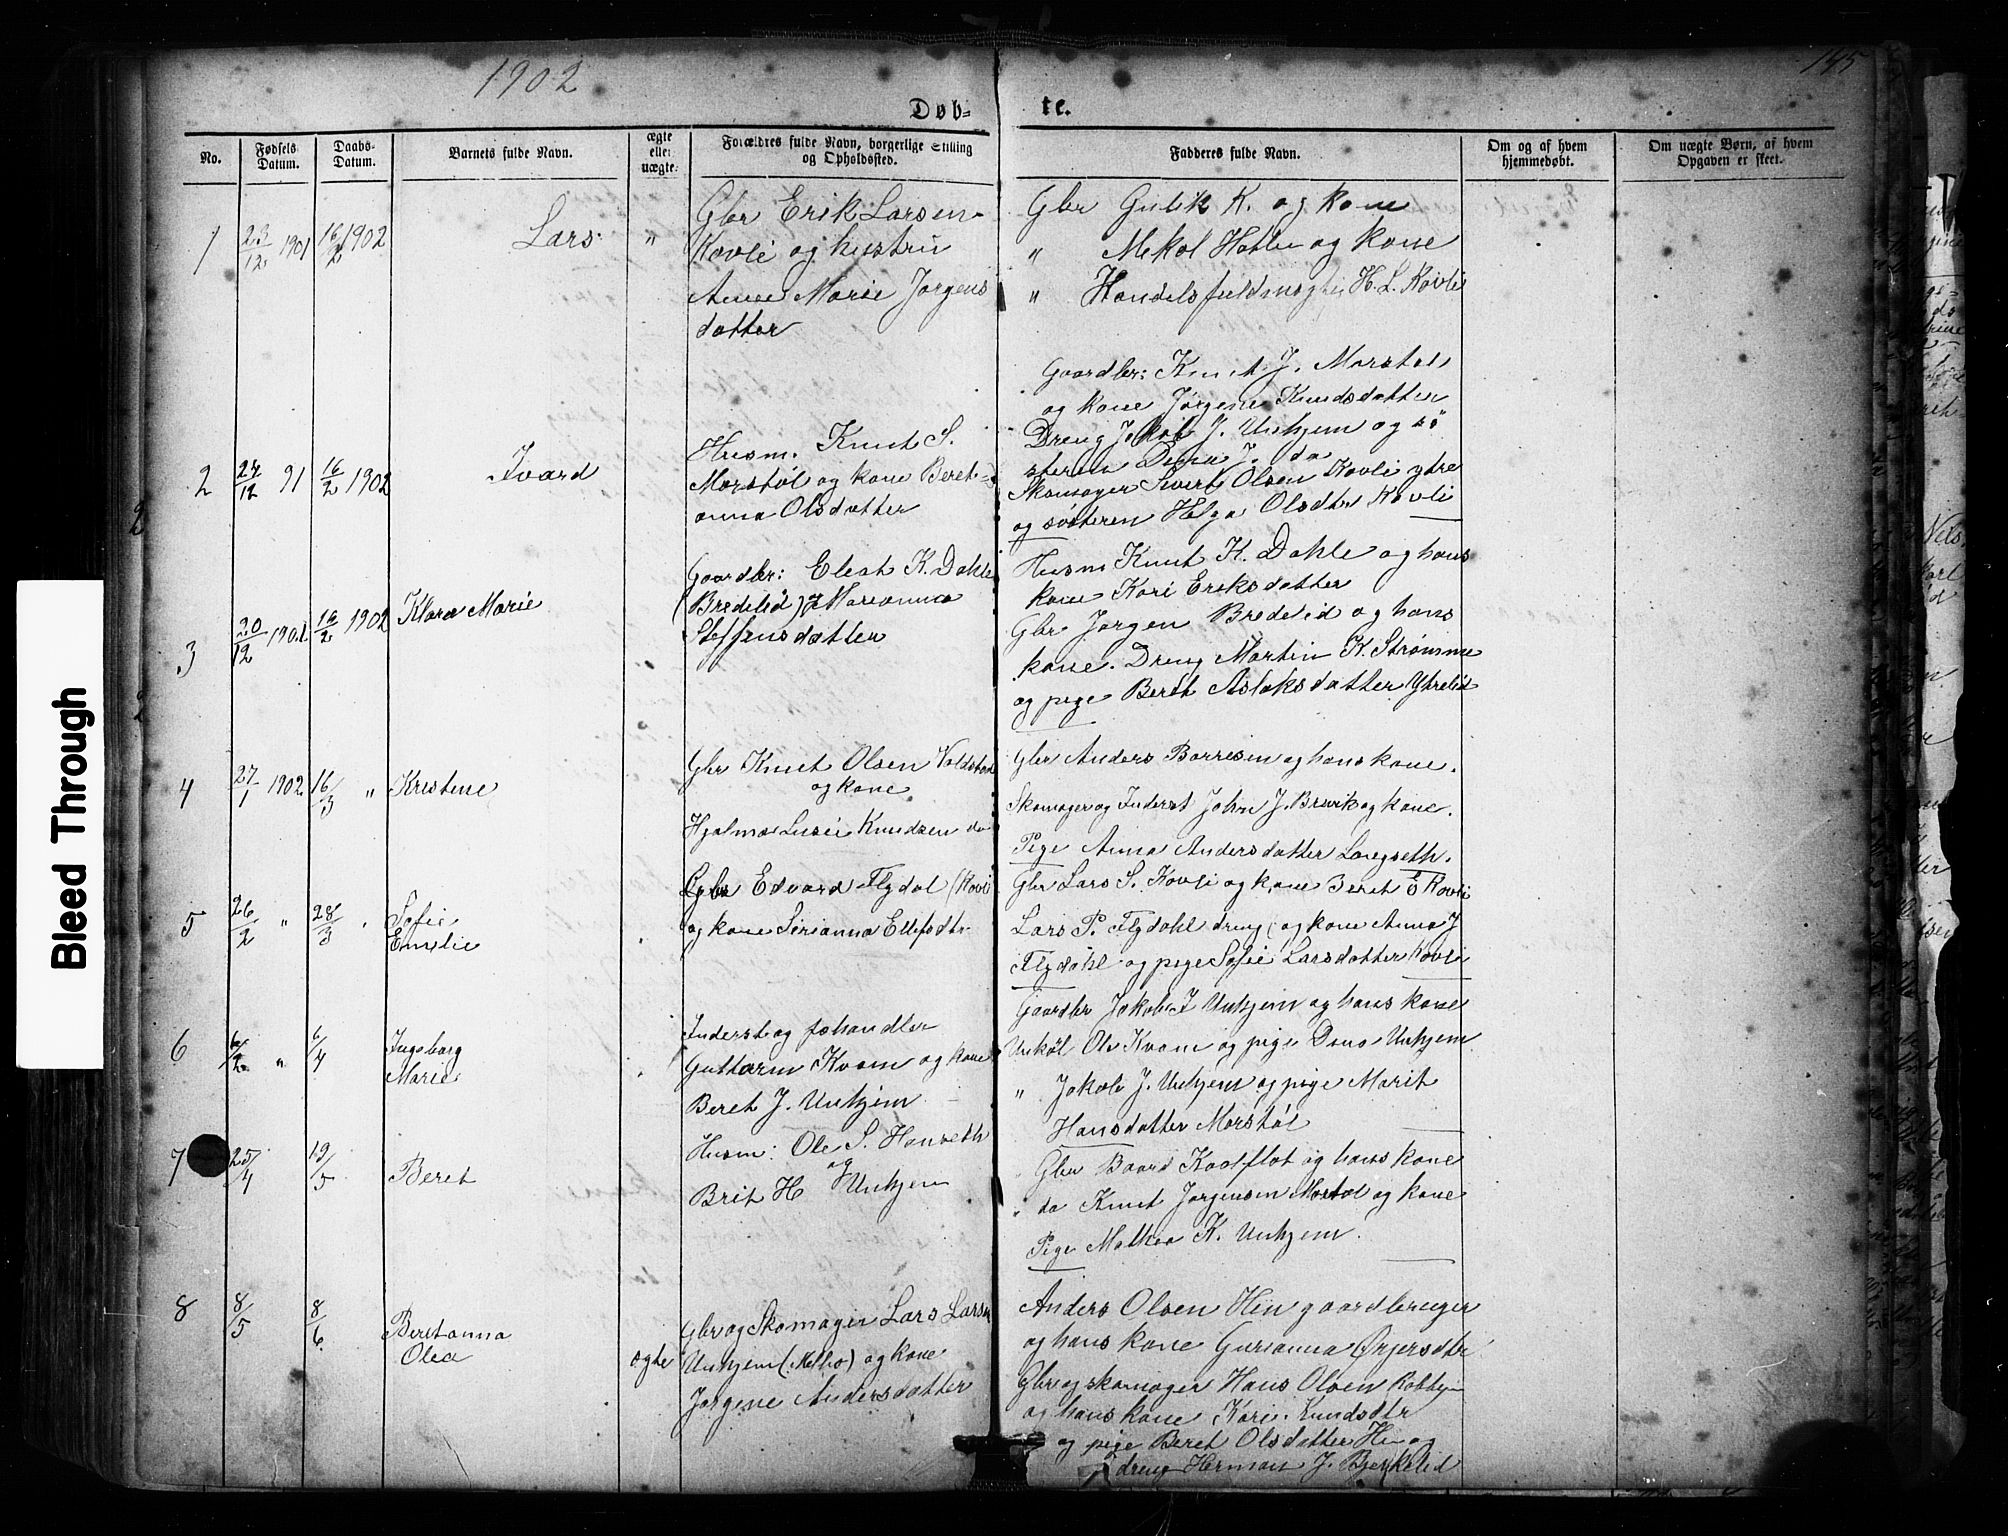 1902
145
Døb-
te.
No.
Fødsels Datum.
Daabs-Datum.
Barnets fulde Navn.
ægte eller uægte.
Forældres fulde Navn, borgerlige Stilling og Opholdssted.
Fadderes fulde Navn.
Om og af hvem hjemmedøbt.
Om uægte Børn, af hvem Opgaven er skeet.
1 23/12 1901 16/2 1902 Lars "
Gbr Erik Larsen
Kovli og hustru
Anne Marie Jørgens
datter
Gbr Gulik K. og kone
" Mekal Hatle og kone
" Handelsfuldmægtig H. L. Kovli
2 24/12 91 16/2 1902 Ivard
Husm. Knut S.
Morstøl og kone Beret-
anna Olsdatter
Gaardbr: Knut J. Morstøl
og kone Jørgine Knudsdatter
Dreng Jakob J. Unhjem og sø
steren Dina J. do
Skomager Sivert Olsen Kovli ytre
og søsteren Helga Olsdtr Kovli
3 20/12 1901 16/2 1902 Klara Marie
Gaardbr: Elest K. Dahle
(Bredelid) & Marianna
Steffensdatter
Husm Knut K. Dahle og hans
kone Kari Eriksdatter
Gbr Jørgen Bredelid og hans
kone. Dreng Martin K. Strømme
og pige Beret Aslaksdatter Ytrelid
4 27/1 1902 16/3 " Kristine
Gbr Knut Olsen Voldstad
og kone
Hjalma Lusie Knudsen do
Gbr Anders Børresen og hans kone.
Skomager og Inderst John J. Brevik og kone.
Pige Anna Andersdatter Langseth.
5 26/2 " 28/3 " Sofie
Emelie
Gbr Edvard Flydal (Kovli
og kone Serianna Ellefsdtr
Gbr Lars S. Kovli og kone Beret E Kovli
Lars P. Flydahl dreng (og kone Anna J
Flydahl og pige Sofie Larsdatter Kovli
6 6/2 " 6/4 Ingeborg
Marie
Inderst og fehandler
Guttorm Kvam og kone
Beret J. Unhjem
Gaardbr Jakob J Unhjem og hans kone
Unkøl Ole Kvam og pige Dina Unhjem
" Jakob J. Unhjem og pige Marit
Hansdatter Morstøl
7 25/4 19/5 Beret
Husm: Ole S. Hanseth
og
Brit H Unhjem
Gbr Baard Kaolflot og hans kone
" do Knut Jørgensen Morstøl og kone
Pige Mathea K. Unhjem.
8 8/5 8/6 Beretanna
Olea
ægte
Gbr og Skomager Lars Larsen
Unhjem (Melbo) og kone
Jørgine Andersdatter
Anders Olsen Hin gaardbruger
og hans kone Gurianna Ørjersdtr
Gbr og skomager Hans Olsen
og hans kone Kari Knudsdtr
og pige Beret Olsdatter Hin og
dreng Herman J. Bjerkelid
Bleed Through